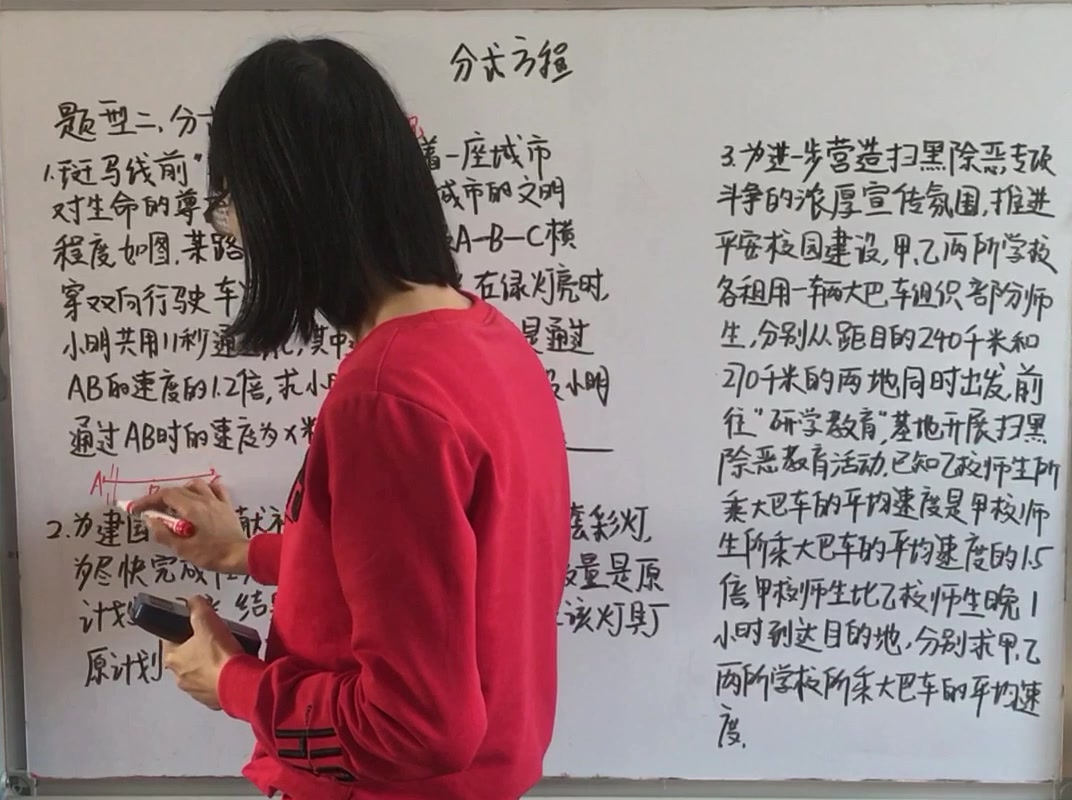 分式方程
题型二、分
1.斑马线前"
着一座城市
对生命的尊
城市的文明
程度,如图,某路
A-B-C横
穿双向行驶车
在绿灯亮时,
小明共用11秒通
其中
是通过
AB的速度的1.2倍,求小
小明
通过AB时的速度为x米
A
B
2.为建国
献礼
套彩灯,
为尽快完成任
量是原
计划
结
该灯具厂
原计划
3.为进一步营造扫黑除恶专项
斗争的浓厚宣传氛围,推进
平安校园建设,甲、乙两所学校
各租用一辆大巴车组织部分师
生,分别从距目的240千米和
270千米的两地同时出发,前
往"研学教育"基地开展扫黑
除恶教育活动,已知乙校师生所
乘大巴车的平均速度是甲校师
生所乘大巴车的平均速度的1.5
倍,甲校师生比乙校师生晚1
小时到达目的地,分别求甲、乙
两所学校所乘大巴车的平均速
度.